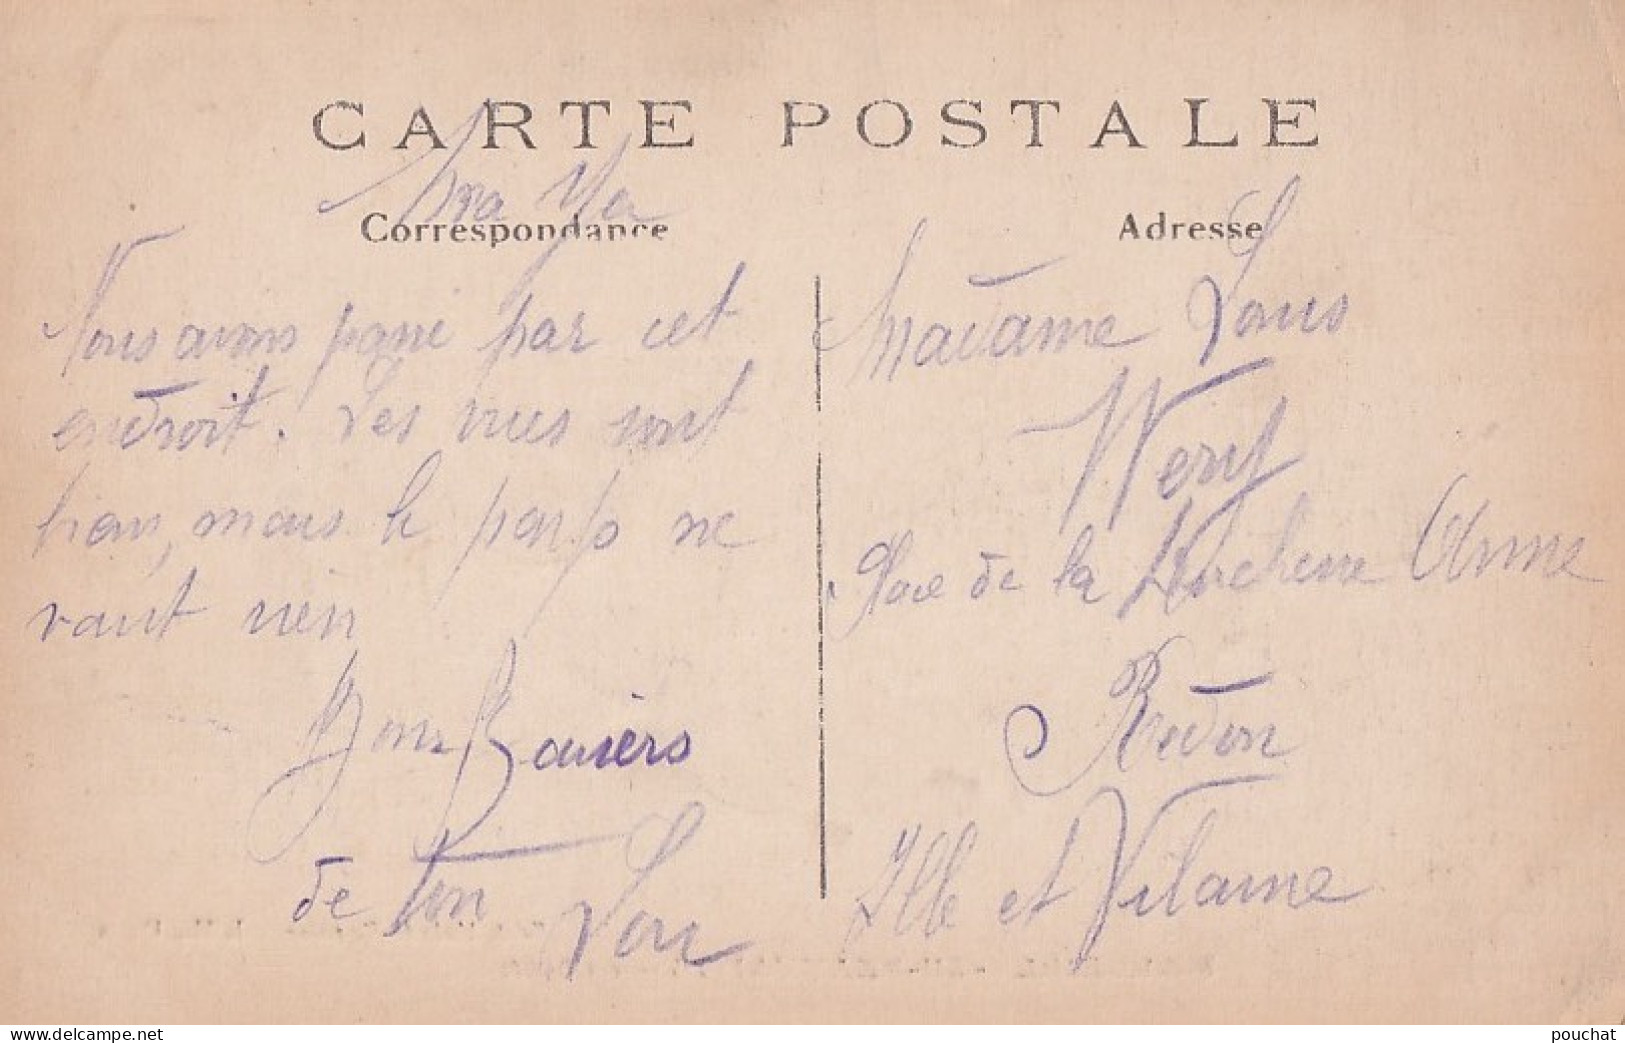 CARTE POSTALE
Correspondance
Nous avons passé par cet
endroit. Les vues sont
bien, mais le pays ne
vaut rien
Bons Baisers
de ton Lou
Adresse
Madame Louis
Place de la Duchesse Anne
Redon
Ille et Vilaine
www.delcampe.net
pouchat